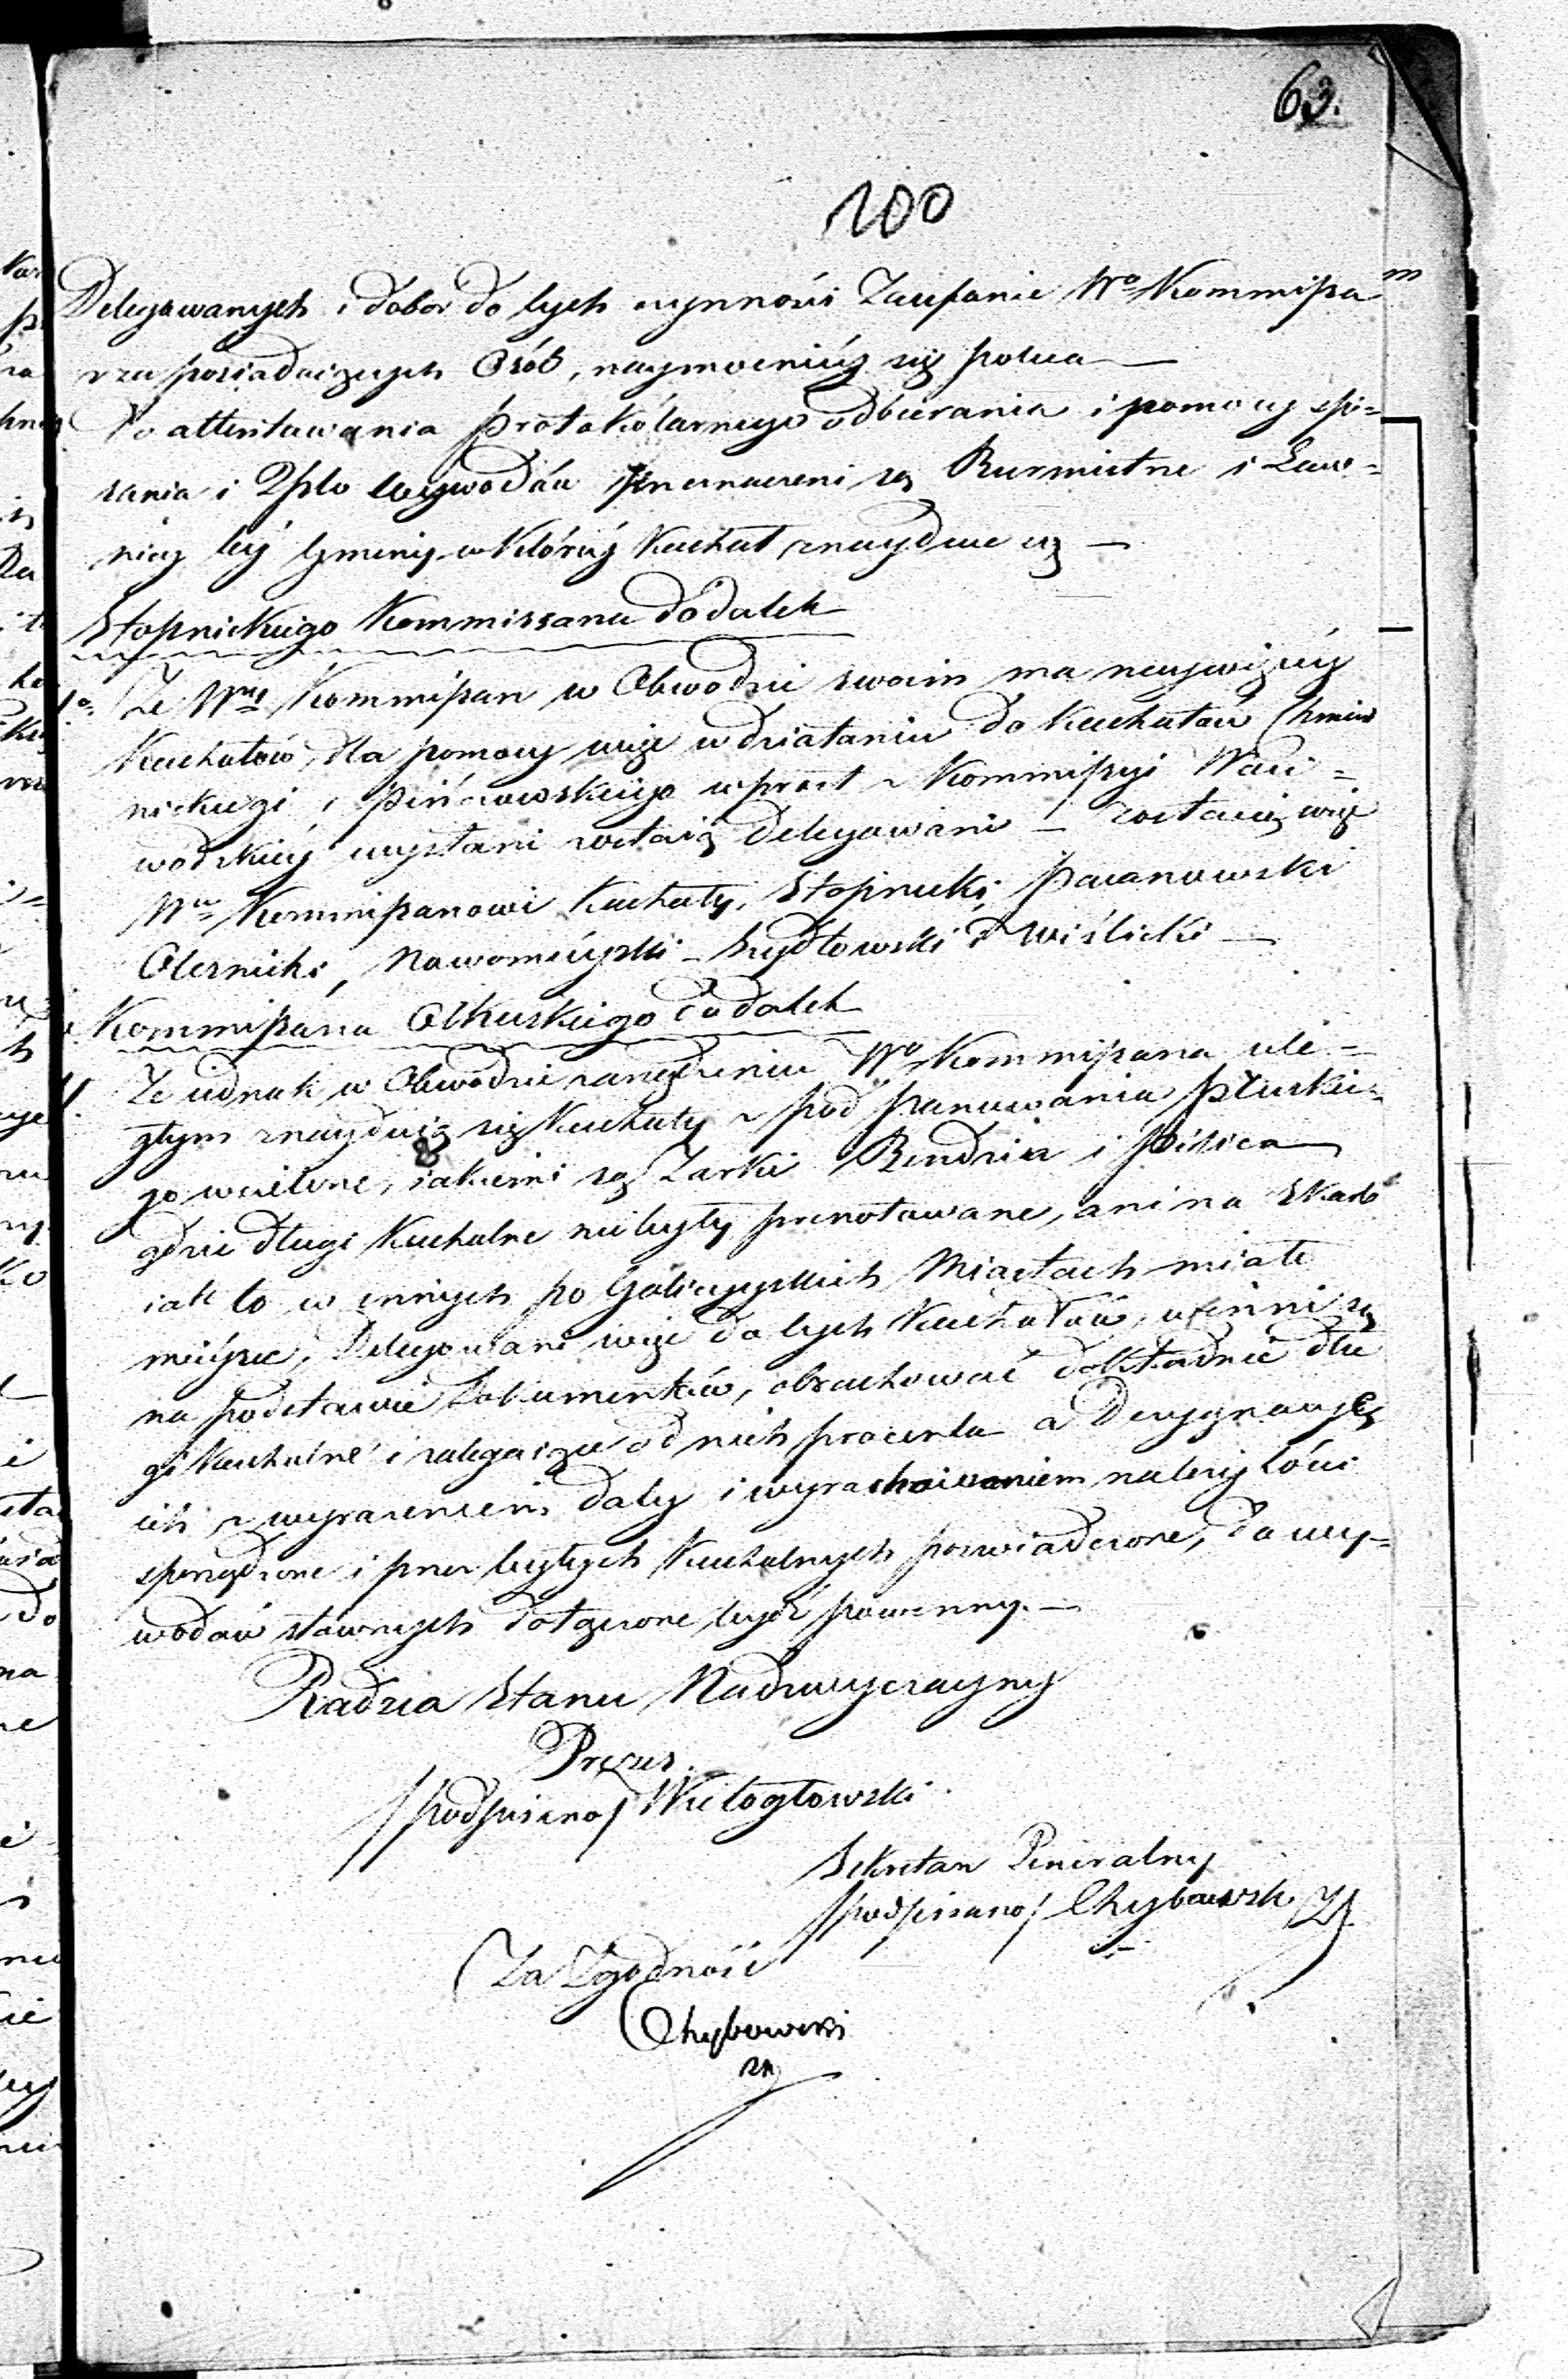 63.
100
Delegowanych i dobor do tych czynności Zaufanie Wo Kommissa
rza posiadaiących Osób, naymocniéy się poleca —
Do attentowania protokólarnego odbierania i pomocy spi=
sania i wywodów przeznaczeni są Burmistrze i Ław=
nicy téy Gminy w któréy Kachał znayduie się —
Stopnickiego Kommissarza dodatek
1o. Ze Wny Kommissarz w Obwodzie swoim ma naywięcéy
Kachałów, dla pomocy więc w działaniu do Kachałów Chmiel
nickiego i Pińczowskiego wprost z Kommissyi Woie=
wódzkiéy wysłani zostaią Delegowani — zostaią więc
Wu Kommissarzowi Kachały, Stopnicki, Pacanowski
Olesnicki, Nowomieyski — Szydłowski i Wiślicki —
Kommissarza Olkuskiego dodatek
Ze iednak w Obwodzie zarządzeniu Wo Kommissarza ule=
głym znayduią się Kachały z pod panowania Pruskie=
go wcielone, iakiemi są Zarki Bendzin i Pilica
gdzie długi Kachalne nie były prenotowane, ani na Skarb
iak to w innych po Galicyyskich Miastach miało
mieysce, Delegowani więc do tych Kachałów, winni są
na podstawie Dokumentów, obrachować dokładnie dłu
gi Kachalne i zalegaiące od nich procenta a Desygnacye
ich z wyrażeniem daty i wyrachowaniem należytości
sporządzone i przez byłych Kachalnych poświadczone, do wy=
wodów słownych dołączone bydź powinny. —
Radzca Stanu Nadzwyczayny
Prezes.
/podpisano/ Wielogłowski
Sekretarz Generalny
/podpisano/ Chybowski
Za Zgodność
Chybowski